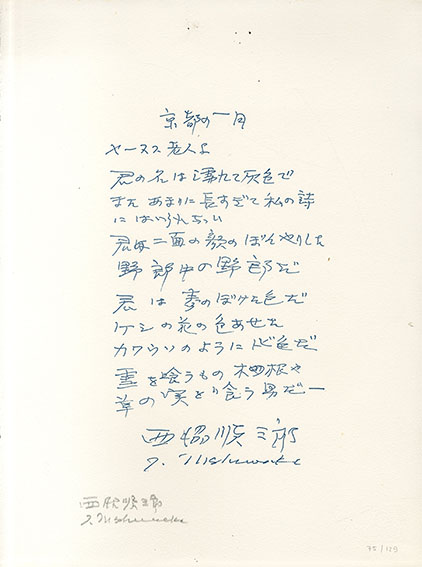 京都の一月
ヤーヌス老人よ
君の名は濡れて灰色で
また あまりに長すぎて私の詩
にはいらない
君は二面の顔のぼんやりした
野郎中の野郎だ
君は 麦のぼけた色だ
ケシの花の色あせた
カワウソのように トビ色だ
雪を喰うもの 木の根や
草の実を喰う男だー
西脇順三郎
J. Nishiwaki
西脇順三郎
J. Nishiwaki